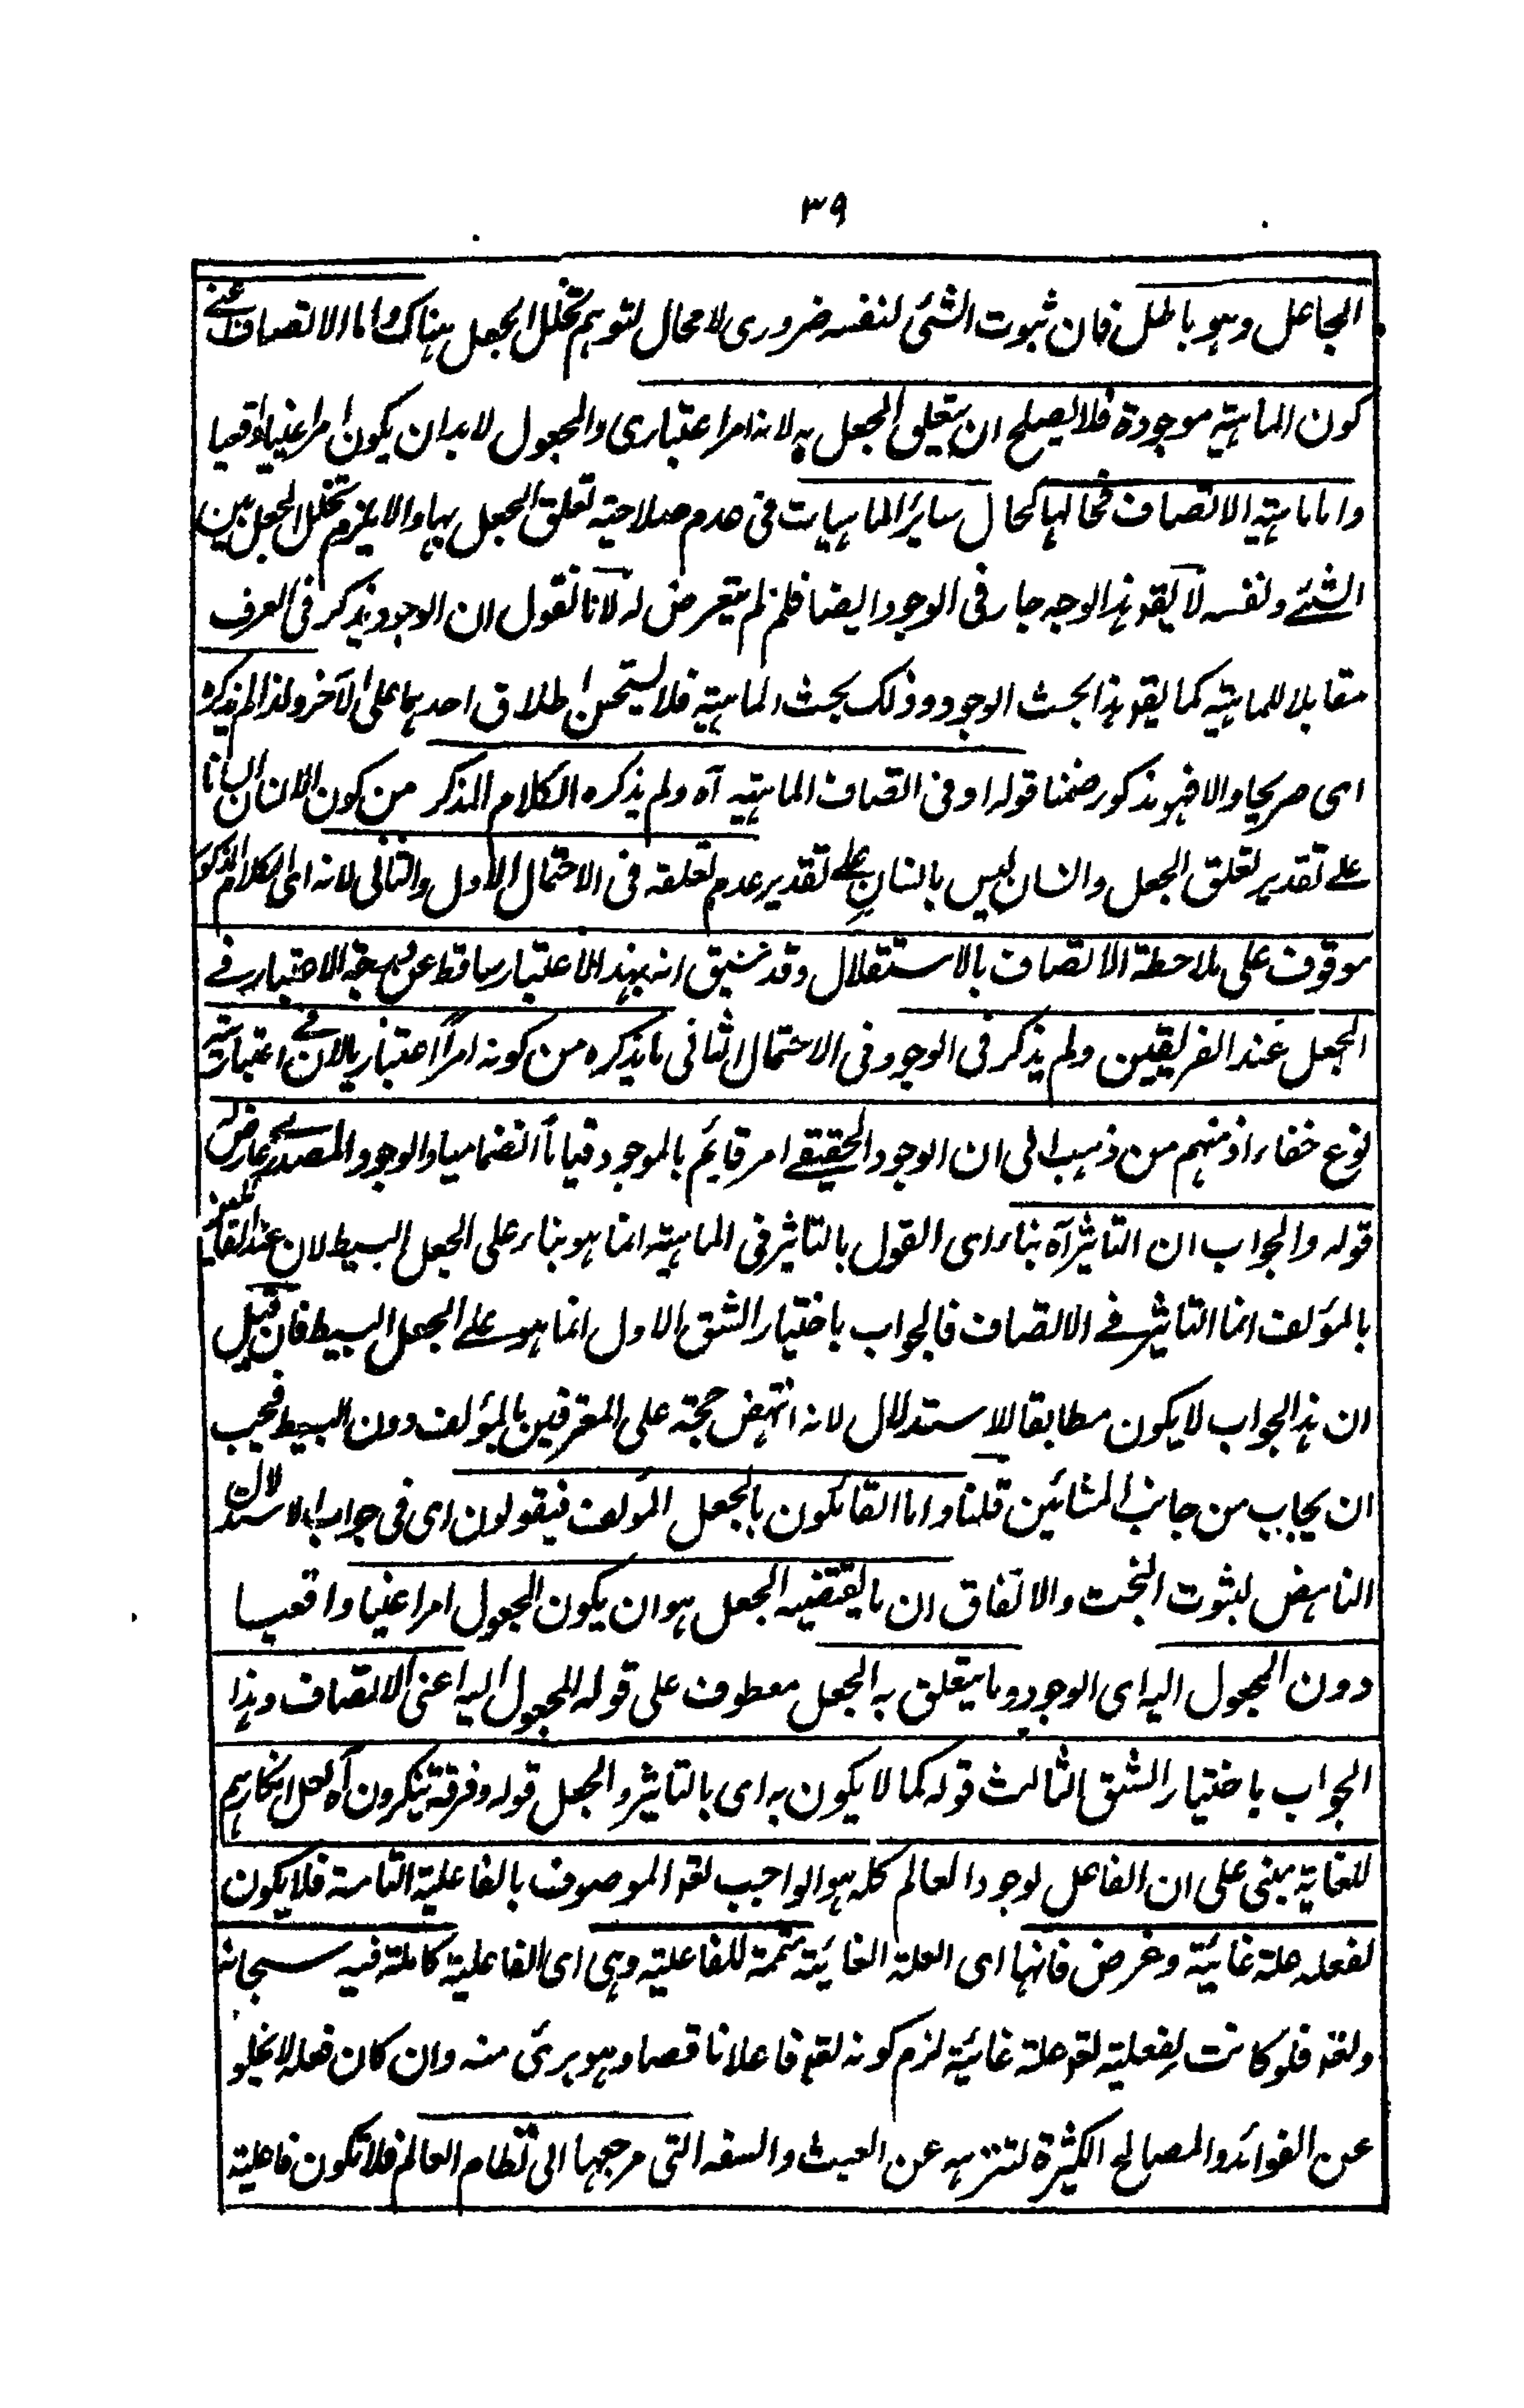 ٣٩
الجاعل وهو باطل فان ثبوت الشئ لنفسه ضروري لا مجال لتوهم تخلل الجعل هناك واما الاتصاف اعنى
كون الماهية موجودة فلا يصلح ان يتعلق الجعل به لانه امر اعتباري والمجعول لابد ان يكون امرا عينيا واقعيا
واما ماهية الاتصاف فحالها كحال سائر الماهيات فى عدم صلاحية تعلق الجعل بها والا يلزم تخلل الجعل بين
الشئ ونفسه لا يقو هذا الوجه جار فى الوجود ايضا فلم لم يتعرض له لانا نقول ان الوجود يذكر فى العرف
مقابلا للماهية كما يقو هذا بحث الوجود وذلك بحث الماهية فلا يستحسن اطلاق احدهما على الآخر ولذا لم يذكره
اى صريحا والا فهو مذكور ضمنا قوله او فى اتصاف الماهية آه ولم يذكره الكلام المذكر من كون الانسان انسانا
على تقدير تعلق الجعل وانسان ليس بانسان على تقدير عدم تعلقه فى الاحتمال الاول والثانى لانه اى الكلام المذكور
موقوف على ملاحظة الاتصاف بالاستقلال وقد سبق انه بهذا الاعتبار ساقط عن درجة الاعتبار فى
الجعل عند الفريقين ولم يذكر فى الوجود فى الاحتمال الثانى ما يذكره من كونه امرا اعتباريا لان فى اعتباريته
نوع خفاء اذ منهم من ذهب الى ان الوجود الحقيقى امر قايم بالموجود قياما انضماميا والوجود المصدرى عارض له
قوله والجواب ان التاثير آه بناء اى القول بالتاثير فى الماهية انما هو بناء على الجعل البسيط لان عند القائلين
بالمؤلف انما التاثير فى الاتصاف فالجواب باختيار الشق الاول انما هو على الجعل البسيط فان قيل
ان هذا الجواب لا يكون مطابقا للاستدلال لانه انتهض حجة على المعترفين بالمؤلف دون البسيط فيجب
ان يجاب من جانب المشائين قلنا واما القائلون بالجعل المؤلف فيقولون اى فى جواب الاستدلال
الناهض لثبوت البخت والاتفاق ان ما يقتضيه الجعل هو ان يكون المجعول امرا عينيا واقعيا
دون المجعول اليه اى الوجود وما يتعلق به الجعل معطوف على قوله المجعول اليه اعنى الاتصاف وهذا
الجواب باختيار الشق الثالث قوله كما لا يكون به اى بالتاثير والجعل قوله وفرقة ينكرون آه لعل انكارهم
للغاية مبنى على ان الفاعل لوجود العالم كله هو الواجب تعو الموصوف بالفاعلية التامة فلا يكون
لفعله علة غائية وغرض فانها اى العلة الغائية متممة للفاعلية وهى اى الفاعلية كاملة فيه سبحانه
وتعو فلو كانت لفعليته تعو علة غائية لزم كونه تعو فاعلا ناقصا وهو برئ منه وان كان فعله لا يخلو
عن الفوائد والمصالح الكثيرة لتنزهه عن العبث والسفه التى مرجعها الى نظام العالم فلا تكون فاعلية